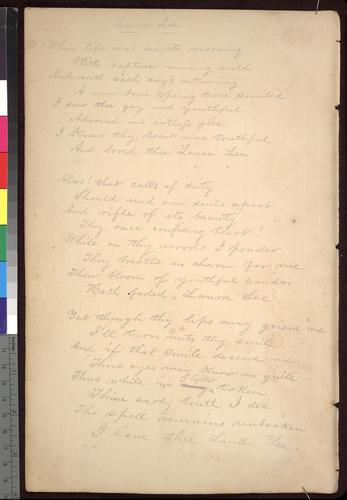 Laura Lee
When life was in its morning
With rapture running wild
And with each day's returning
A new born spring time smiled
I saw thee gay and youthful
Adorned in artless glee
I knew thy heart was truthful
And loved thee Laura Lee
Alas! that calls of duty
Should rend our souls apart
And rifle of its beauty
Thy once confiding heart!
While on thy words I ponder
They breathe no charm for me
Their bloom of youthful candor
Hath faded, Laura Lee
Yet though thy lips may grieve me
I'll turn unto thy smile
And if that smile deceive me
Thine eyes may know no guile
Thus while in a token
Thine early truth I see
The spell remains unbroken
I love thee Laura Lee.